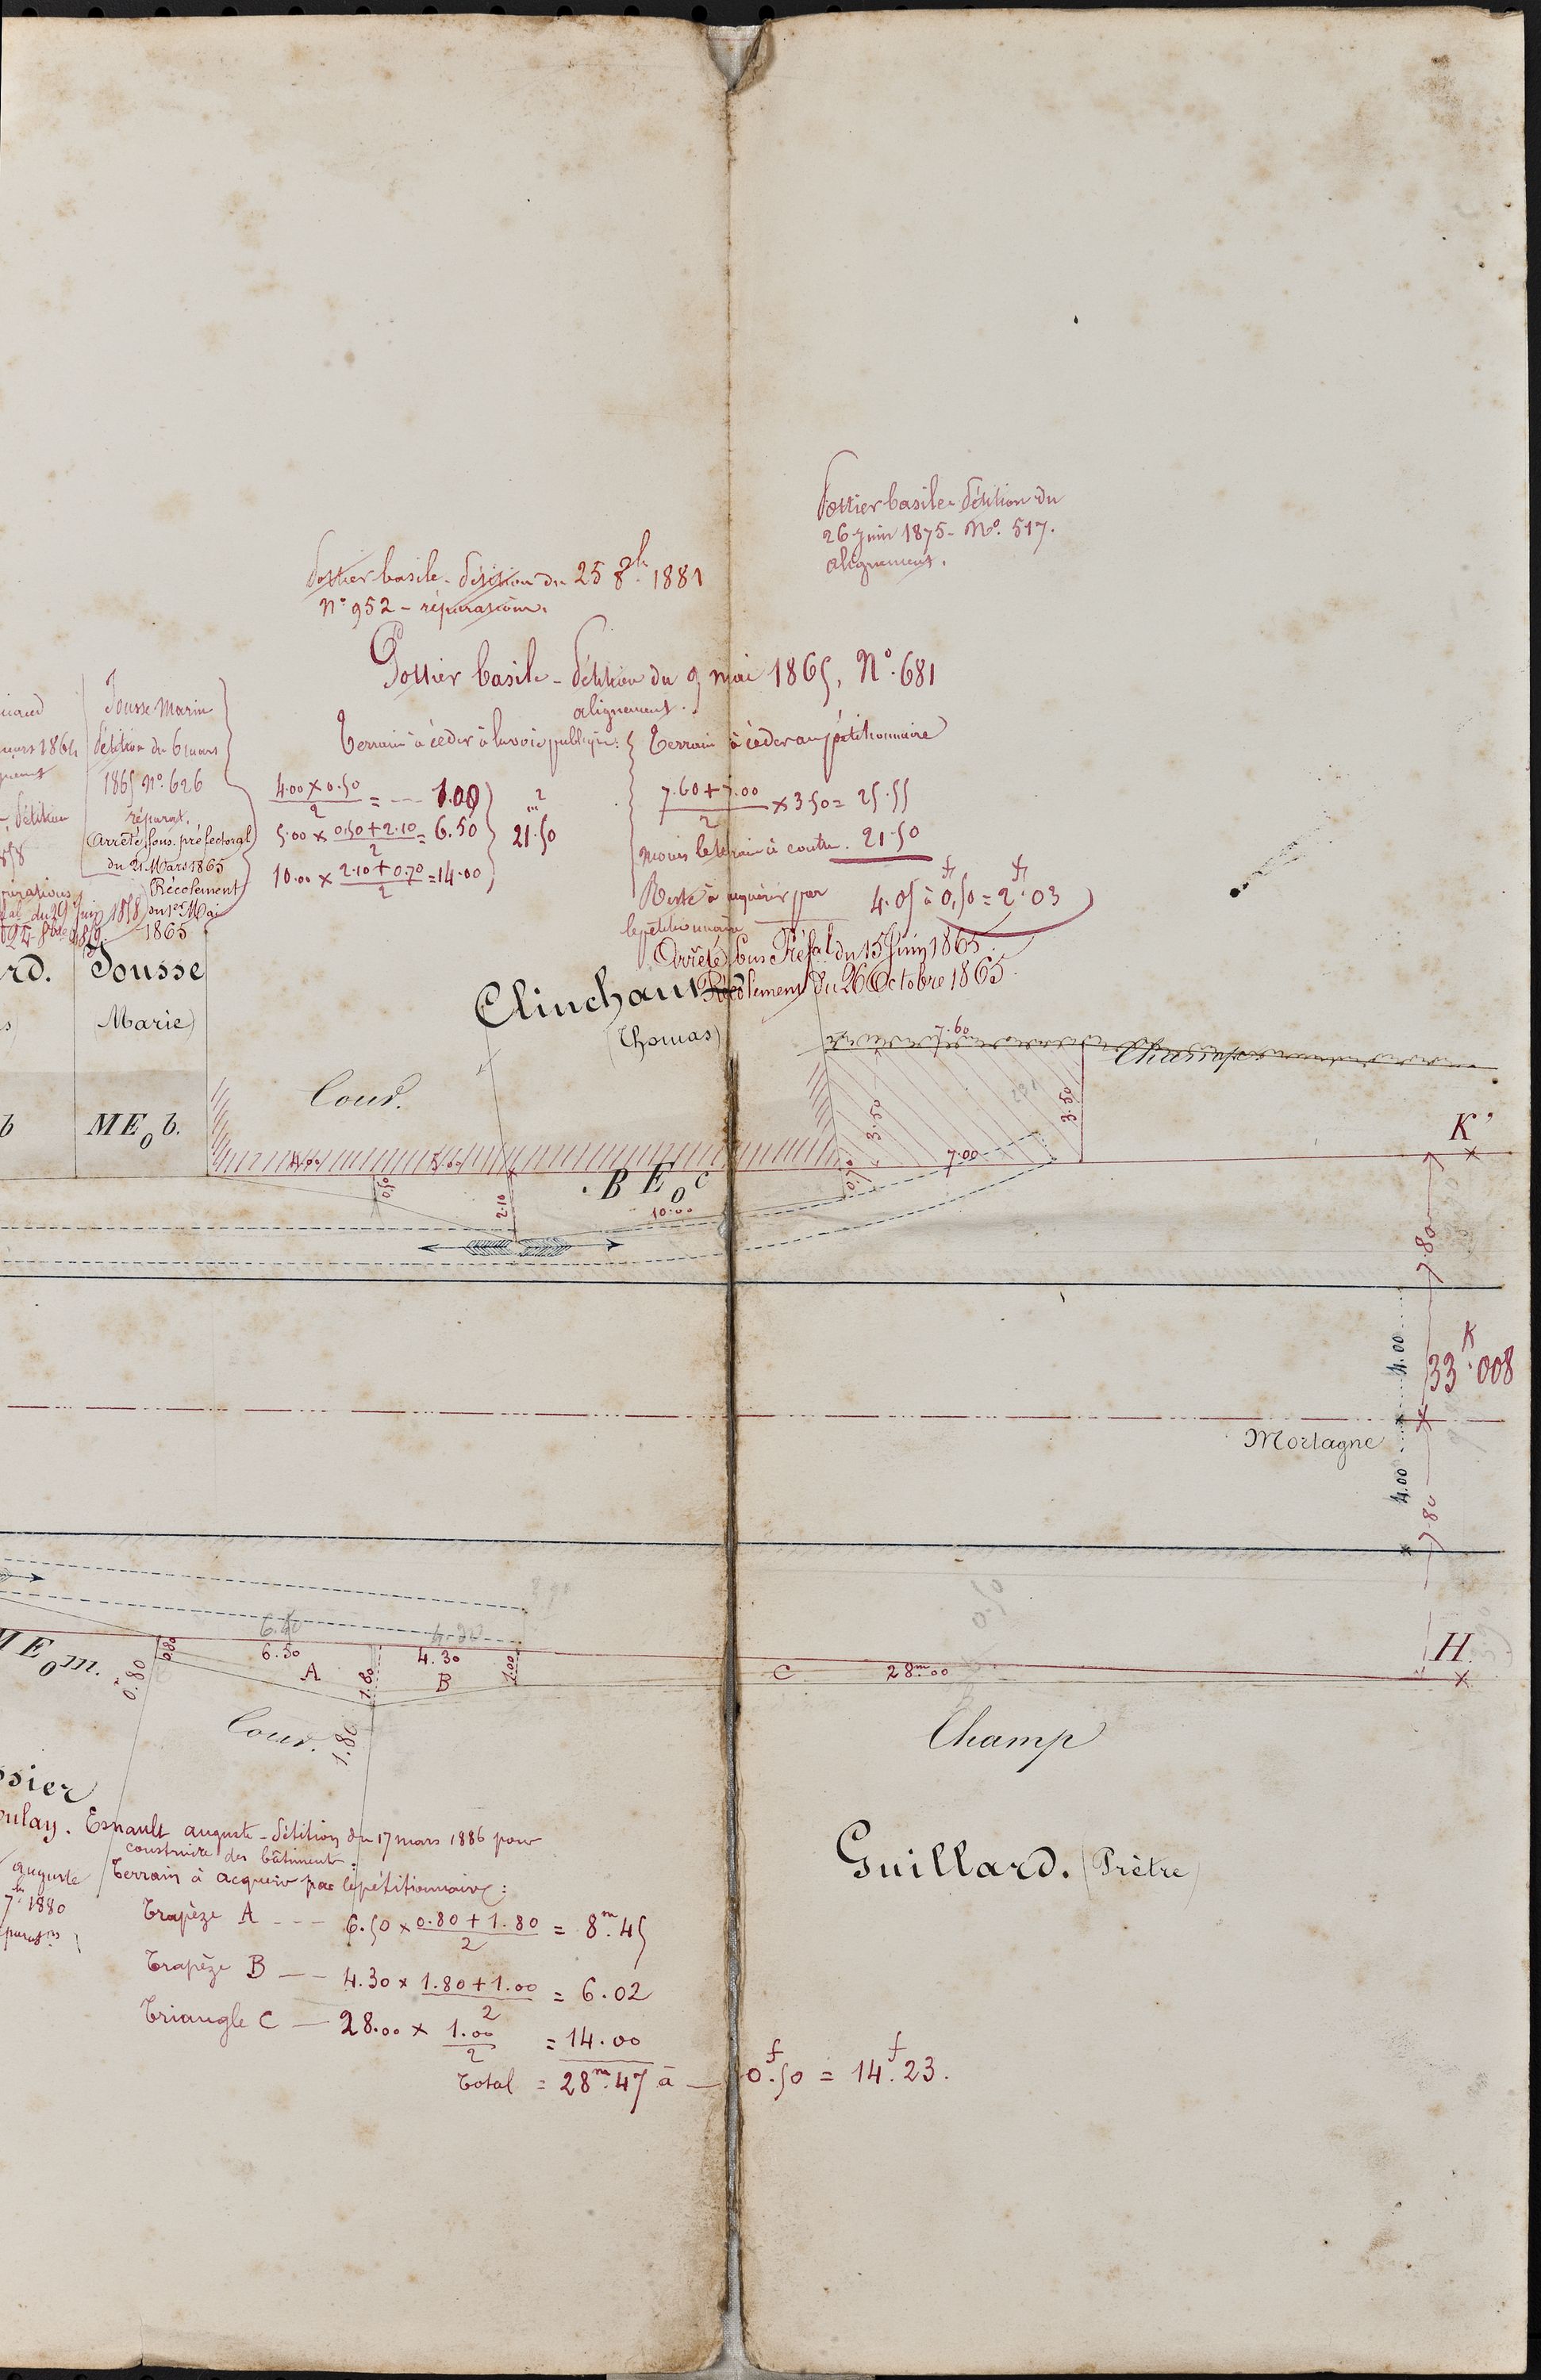 Pottier basile - Pétition du
26 juin 1875 - No. 517.
alignement.
Pottier basile - Pétition du 25 8bre 1881
No 952 - réparations.
Pottier basile - Pétition du 9 mai 1865, No. 681
alignement.
Terrain à céder à la voie publique:
4.00 × 0.50 / 2 = 1.00
5.00 × 0.50 + 2.10 / 2 = 6.50
10.00 × 2.10 + 0.70 / 2 = 14.00
m2
21.50
Terrain à céder au pétitionnaire
7.60 + 7.00 / 2 × 3.50 = 25.55
moins le terrain ci contre. 21.50
Reste à acquérir par
le pétitionnaire
4.05 à 0f,50 = 2f.03
Arrêté Sous Préfal du 15 Juin 1865
Récolement du 26 Octobre 1865
mars 1864
Pétition
Jousse Marin
Pétition du 6 mars
1865 No. 626
réparat.
Arrêté sous-préfectoral
du 21 Mars 1865
Récolement
du 1er Mai
1865
du 29 Juin 1858
rd.
Jousse
(Marie)
Clinchau
(Thomas)
7.60
b
ME0b.
Cour.
3.50
3.50
K'
4.00
5.00
7.00
0.50
2.10
BE0c
10.00
0.70
7.80
4.00
33K.008
Mortagne
4.00
7.80
6.50
4.30
ME0m.
0.80
0.80
6.50
A
1.80
4.30
B
1.00
C
28m.00
H.
Cour.
1.80
Champ
ssier
oulay.
Esnault auguste - Pétition du 17 mars 1886 pour
construire des bâtiments.
Terrain à acquérir par le pétitionnaire:
auguste
1880
Trapèze A --- 6.50 × 0.80 + 1.80 / 2 = 8m.45
Trapèze B -- 4.30 × 1.80 + 1.00 / 2 = 6.02
Triangle C — 28.00 × 1.00 / 2 = 14.00
Total = 28m.47 à — 0f.50 = 14f.23.
Guillard. (Prêtre)